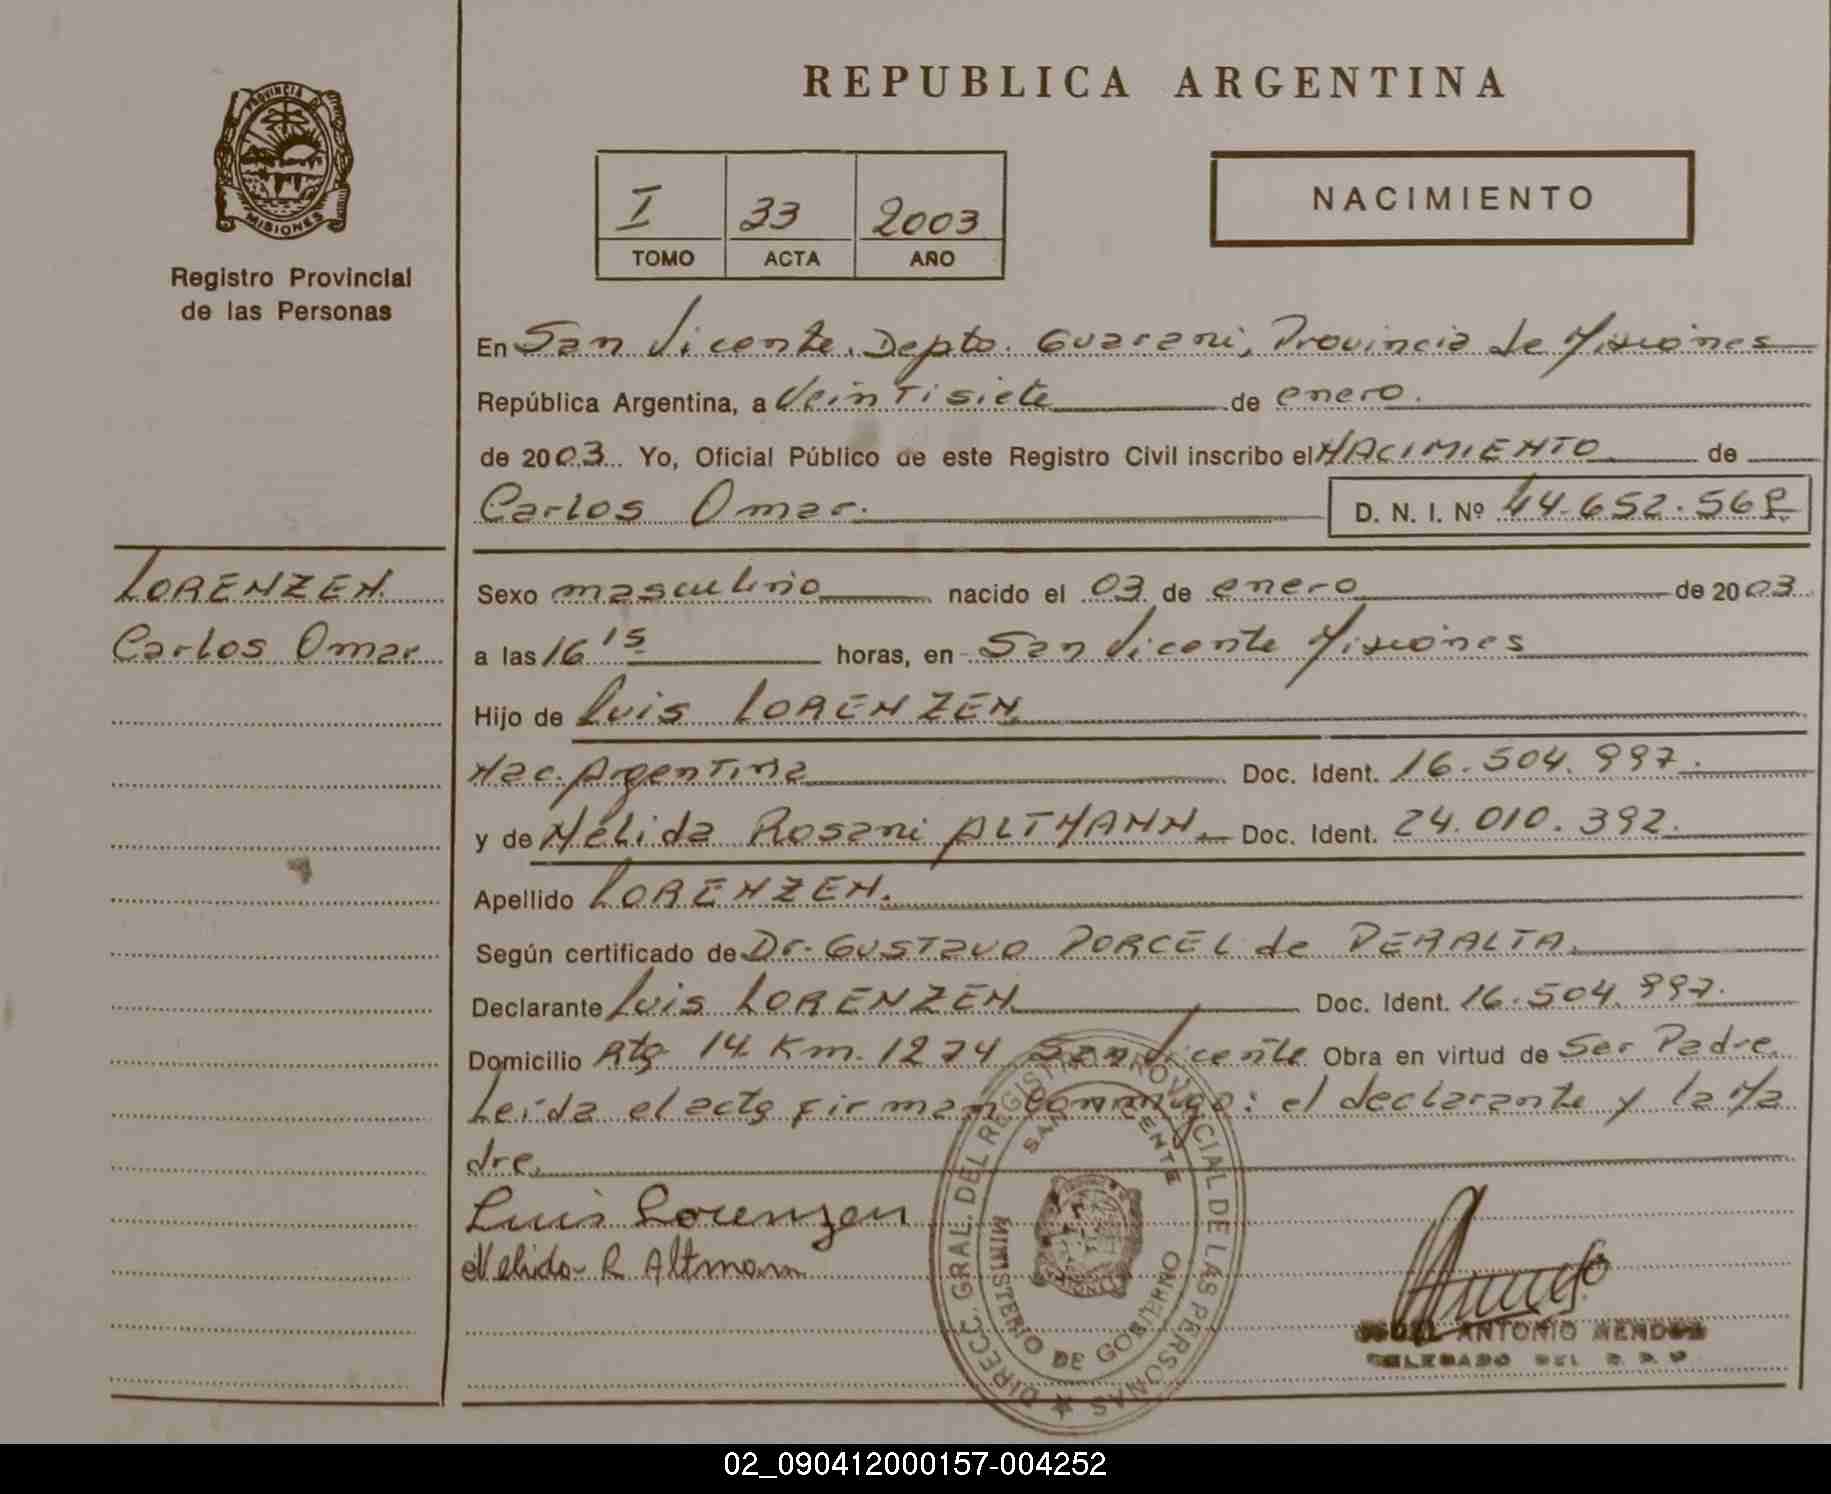 PROVINCIA DE
MISIONES
Registro Provincial
de las Personas
REPUBLICA ARGENTINA
I 33 2003
TOMO ACTA AÑO
NACIMIENTO
En San Vicente, Depto. Guarani, Provincia de Misiones
República Argentina, a Veintisiete de enero.
de 2003 Yo, Oficial Público de este Registro Civil inscribo el NACIMIENTO de
Carlos Omar. D. N. I. Nº 44.652.568
LORENZEN.
Carlos Omar.
Sexo masculino nacido el 03 de enero de 2003
a las 16 15 horas, en San Vicente Misiones
Hijo de Luis LORENZEN
Nac. Argentina Doc. Ident. 16.504.997.
y de Nélida Rosani ALTMANN. Doc. Ident. 24.010.392.
Apellido LORENZEN.
Según certificado de Dr. GUSTAVO PORCEL de PERALTA.
Declarante Luis LORENZEN Doc. Ident. 16.504.997.
Domicilio Rta 14 Km. 1274 San Vicente Obra en virtud de Ser Padre.
Leída el acta firman conmigo: el declarante y la Ma
dre.
Luis Lorenzen
Nelida R Altmann
DIRECC. GRAL. DEL REGISTRO PROVINCIAL DE LAS PERSONAS
SAN VICENTE
MINISTERIO DE GOBIERNO
ANTONIO MENDOZA
DELEGADO DEL R. P. P.
02_090412000157-004252